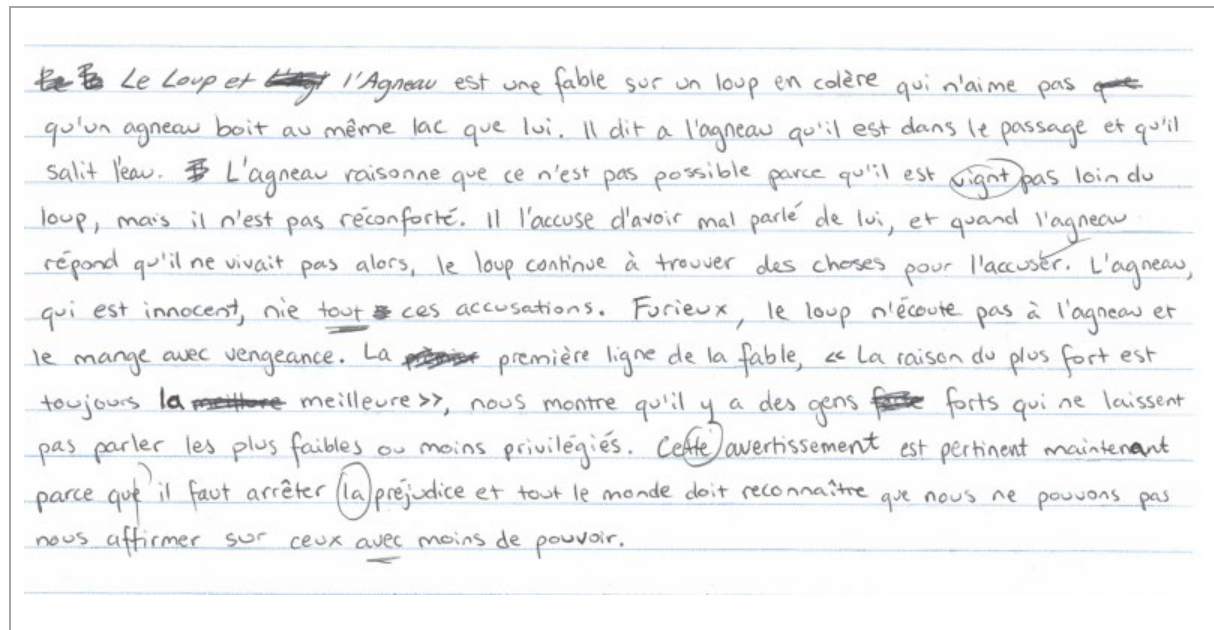 Le Loup et l'Agneau est une fable sur un loup en colère qui n'aime pas
qu'un agneau boit au même lac que lui. Il dit a l'agneau qu'il est dans le passage et qu'il
salit l'eau. L'agneau raisonne que ce n'est pas possible parce qu'il est vignt pas loin du
loup, mais il n'est pas réconforté. Il l'accuse d'avoir mal parlé de lui, et quand l'agneau
répond qu'il ne vivait pas alors, le loup continue à trouver des choses pour l'accuser. L'agneau,
qui est innocent, nie tout ces accusations. Furieux, le loup n'écoute pas à l'agneau et
le mange avec vengeance. La première ligne de la fable, << La raison du plus fort est
toujours la meilleure >>, nous montre qu'il y a des gens forts qui ne laissent
pas parler les plus faibles ou moins privilégiés. Cette avertissement est pertinent maintenant
parce que il faut arrêter la préjudice et tout le monde doit reconnaître que nous ne pouvons pas
nous affirmer sur ceux avec moins de pouvoir.